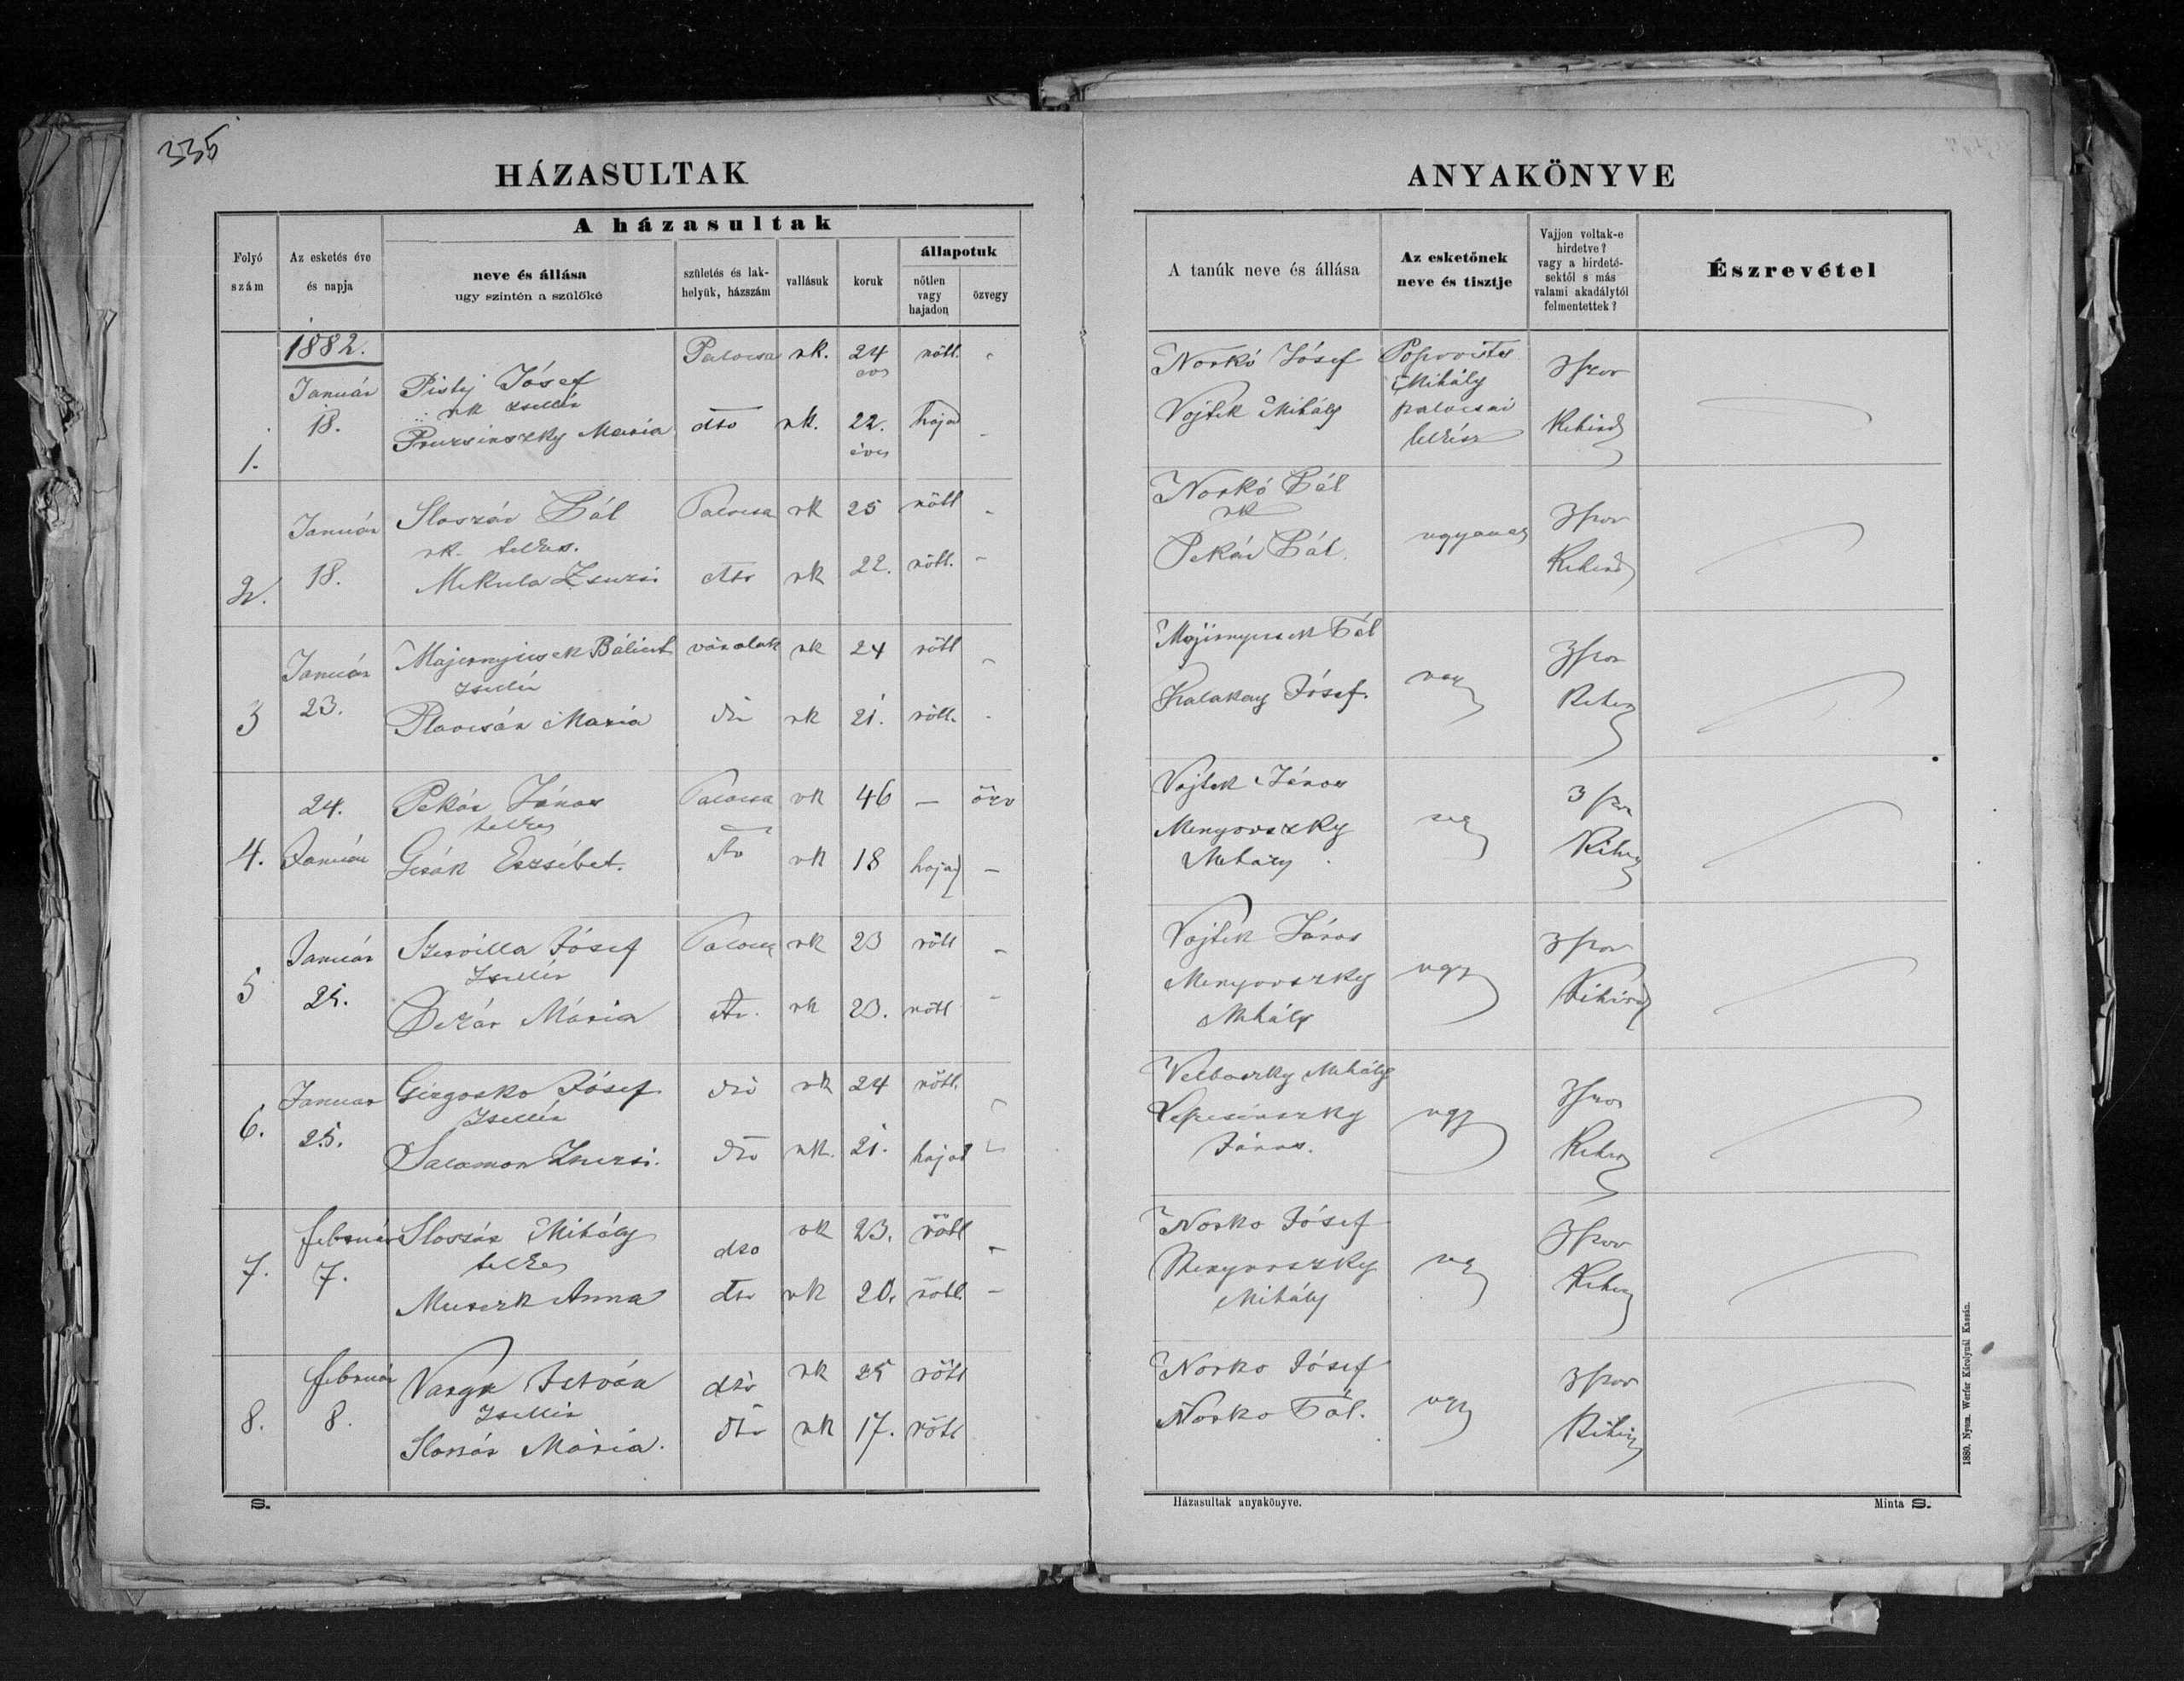 335
HÁZASULTAK
ANYAKÖNYVE
Folyó szám
Az esketés éve és napja
A házasultak
neve és állása
ugy szintén a szülőké
születés és lakhelyük, házszám
vallásuk
koruk
állapotuk
nőtlen vagy hajadon
özvegy
A tanúk neve és állása
Az esketőnek neve és tisztje
Vajjon voltak-e hirdetve? vagy a hirdetésektől s más valami akadálytól felmentettek?
Észrevétel
1882.
1. Január 18.
Pistj Jósef Palocsa rk. 24 nőtl.
rk zsellér
Pruzsinszky Maria dtto rk. 22. éves hajad
Norkó Jósef
Vojtek Mihály
Mihály palocsai
3szor Kihird
2. Január 18.
Sloszár Pál Palocsa rk 25 nőtl
rk. telkes.
Mekula Zsuzsi dtto rk 22. nőtl.
Norkó Pál
rk
Pekár Pál
ugyanaz
3szor Kihird
3 Január 23.
Majernyicsek Bálint váralak rk 24 nőtl
zsellér
Plavcsán Maria dto rk 21. nőtl.
Pál
Kalakay Jósef.
3szor
4. 24. Január
Pekár János Palocsa rk 46 — özv
telkes
Erzsébet. dto rk 18 hajad —
Vojtek János
Menyovszky Mihály
3szor
5 Január 25.
Jósef Palocsa rk 23 nőtl
Zsellér
Mária dto. rk 23. nőtl
Vojtek János
Menyovszky Mihály
ugy
3szor Kihird
6. Januar 25.
Girgosko Jósef dto rk 24 nőtl.
Zsellér
Salamon Zsuzsi. dto rk. 21. hajad
Mihály
János.
ugy
3szor
7. február 7.
Sloszár Mihály dto rk 23. nőtl
telkes
Anna dto rk 20. nőtl.
Norko Jósef
Menyovszky Mihály
3szor
8. február 8.
Varga István dto rk 25 nőtl
Zsellér
Sloszár Mária. dto rk 17. nőtl
Norko Jósef
Norko Pál.
ugy
3szor
S.
Házasultak anyakönyve.
Minta S.
1880. Nyom. Werfer Károlynál Kassán.